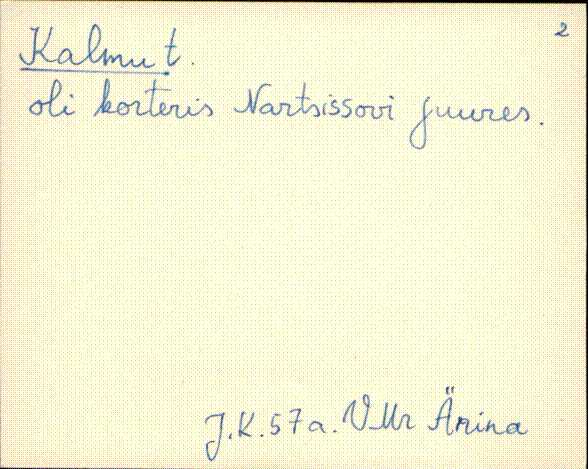 2
Kalmut.
oli korteris Nartsissovi juures.
J.K. 57a. VMr Änina